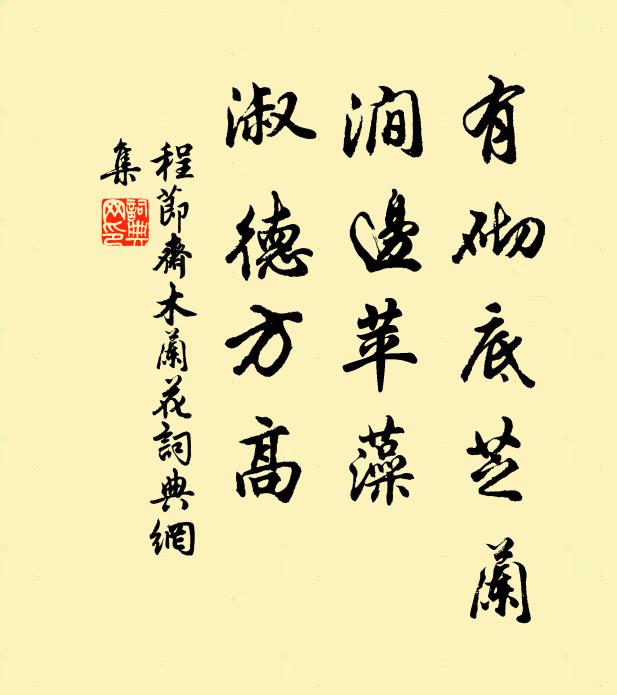 有砌底芝蘭
澗邊苹藻
淑德方高
程節齋木蘭花詞典網
集
詞典網印